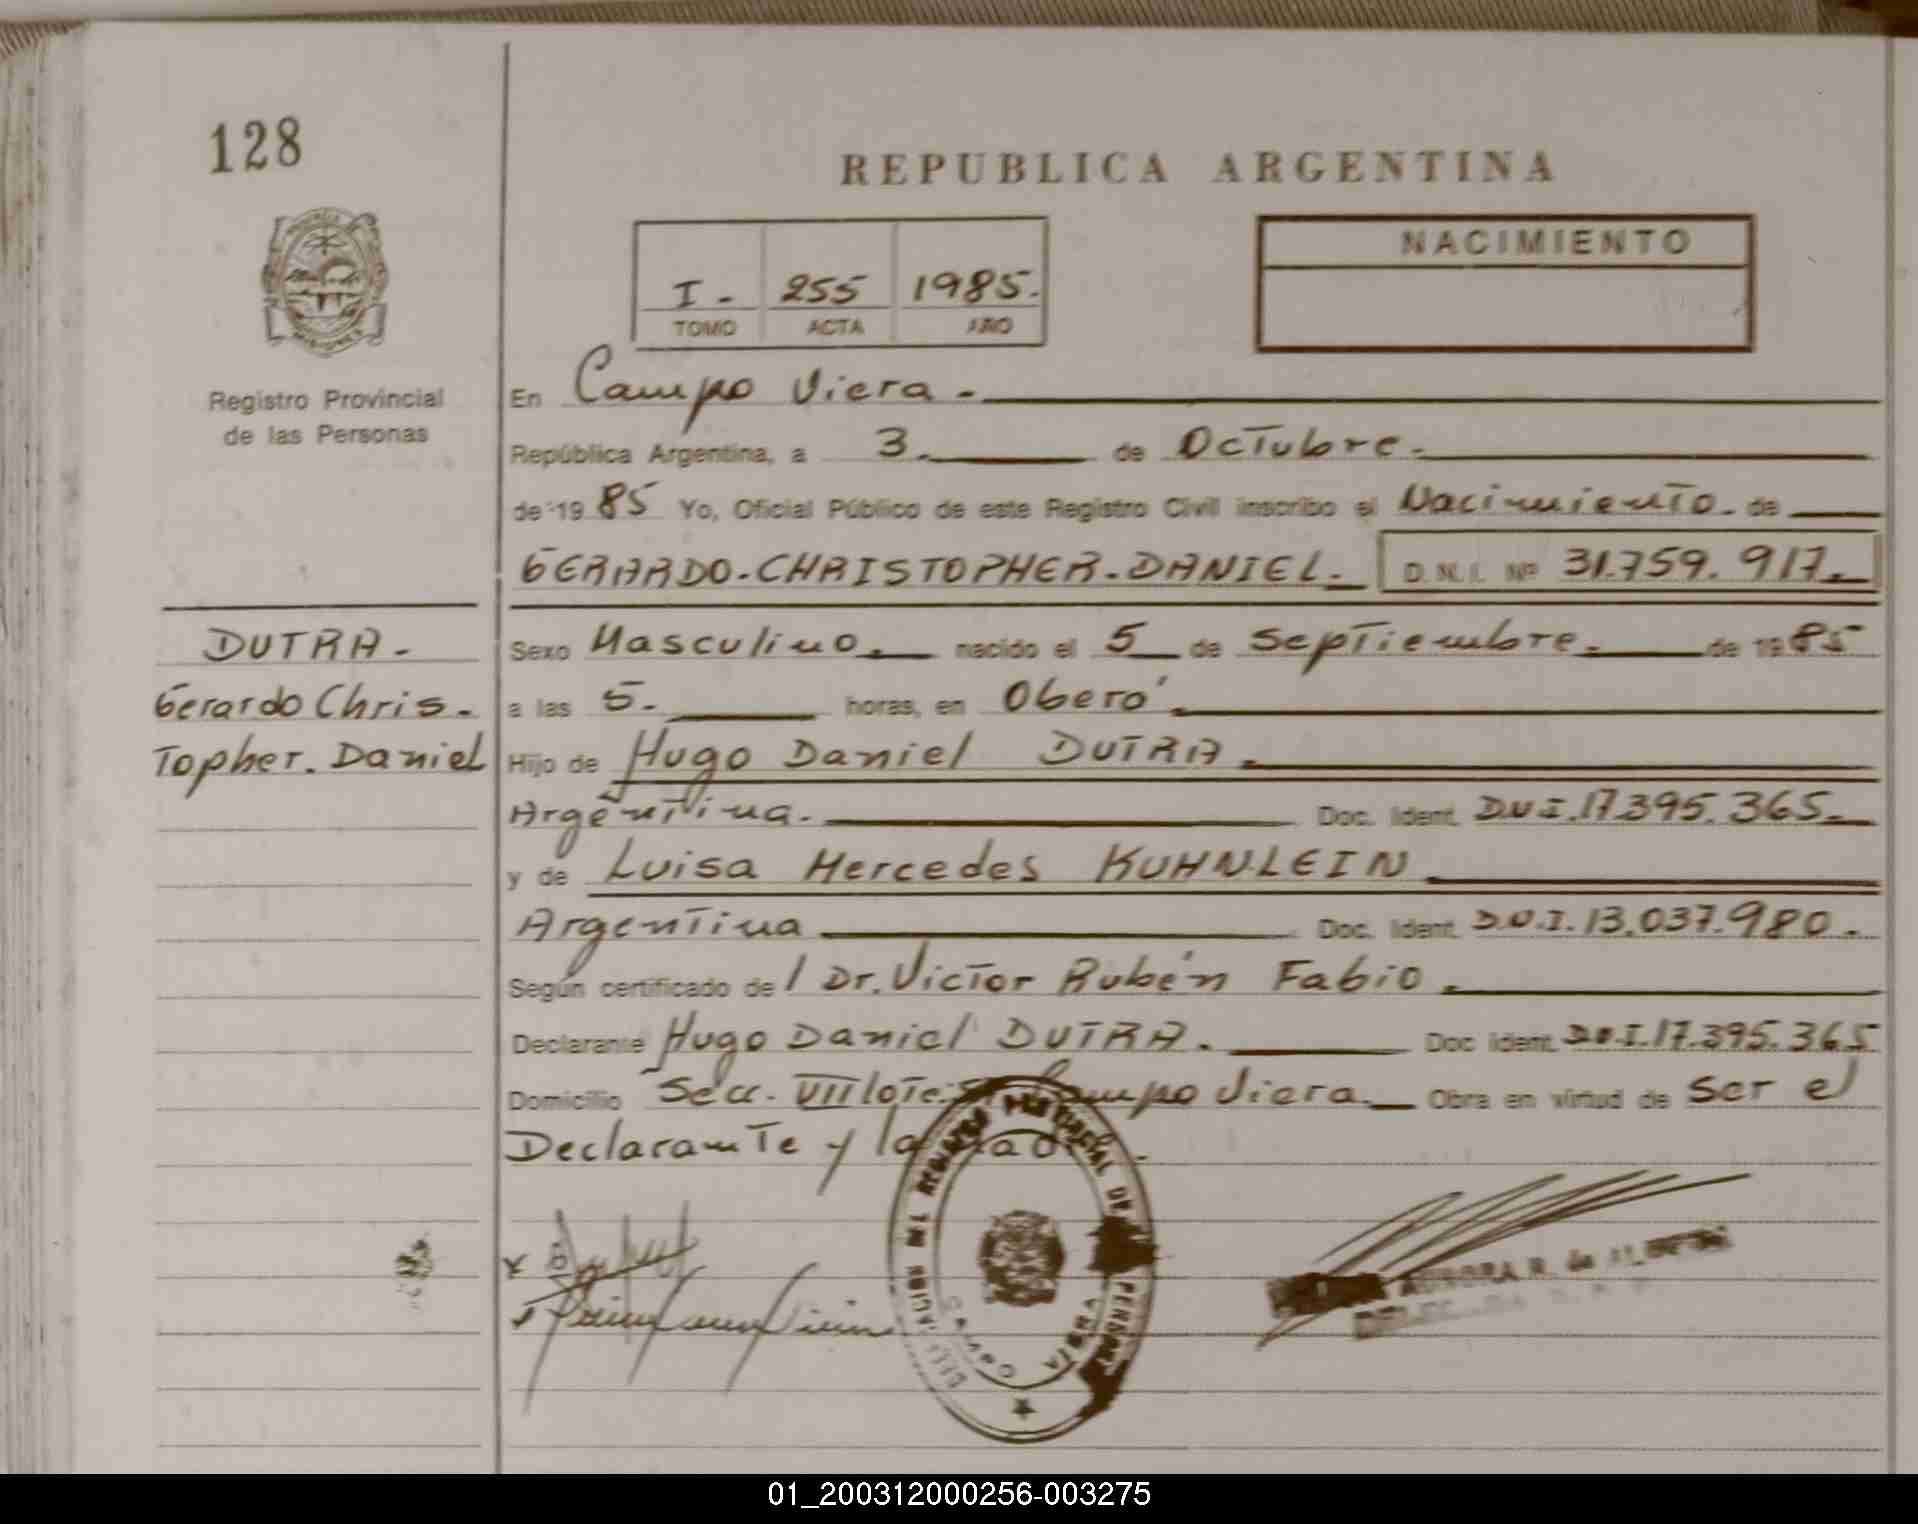 128
REPUBLICA ARGENTINA
NACIMIENTO
I - 255 1985.
TOMO ACTA AÑO
Registro Provincial
de las Personas
En Campo Viera -
República Argentina, a 3. de Octubre.
de 19 85 Yo, Oficial Público de este Registro Civil inscribo el Nacimiento. de
GERARDO.CHRISTOPHER.DANIEL. D. N. I. Nº 31.759.917.
DUTRA -
Gerardo Chris-
Topher. Daniel
Sexo Masculino. nacido el 5 de Septiembre. de 1985
a las 5. horas, en Oberá.
Hijo de Hugo Daniel DUTRA.
Argentina. Doc. Ident. D.N.I.17.395.365.
y de Luisa Mercedes KUHNLEIN
Argentina Doc. Ident. D.N.I. 13.037.980.
Según certificado del Dr. Victor Rubén Fabio.
Declarante Hugo Daniel DUTRA. Doc Ident. D.N.I.17.395.365
Domicilio Secc. VII lote Campo Viera. Obra en virtud de Ser el
Declarante y la
AURORA R. de
01_200312000256-003275